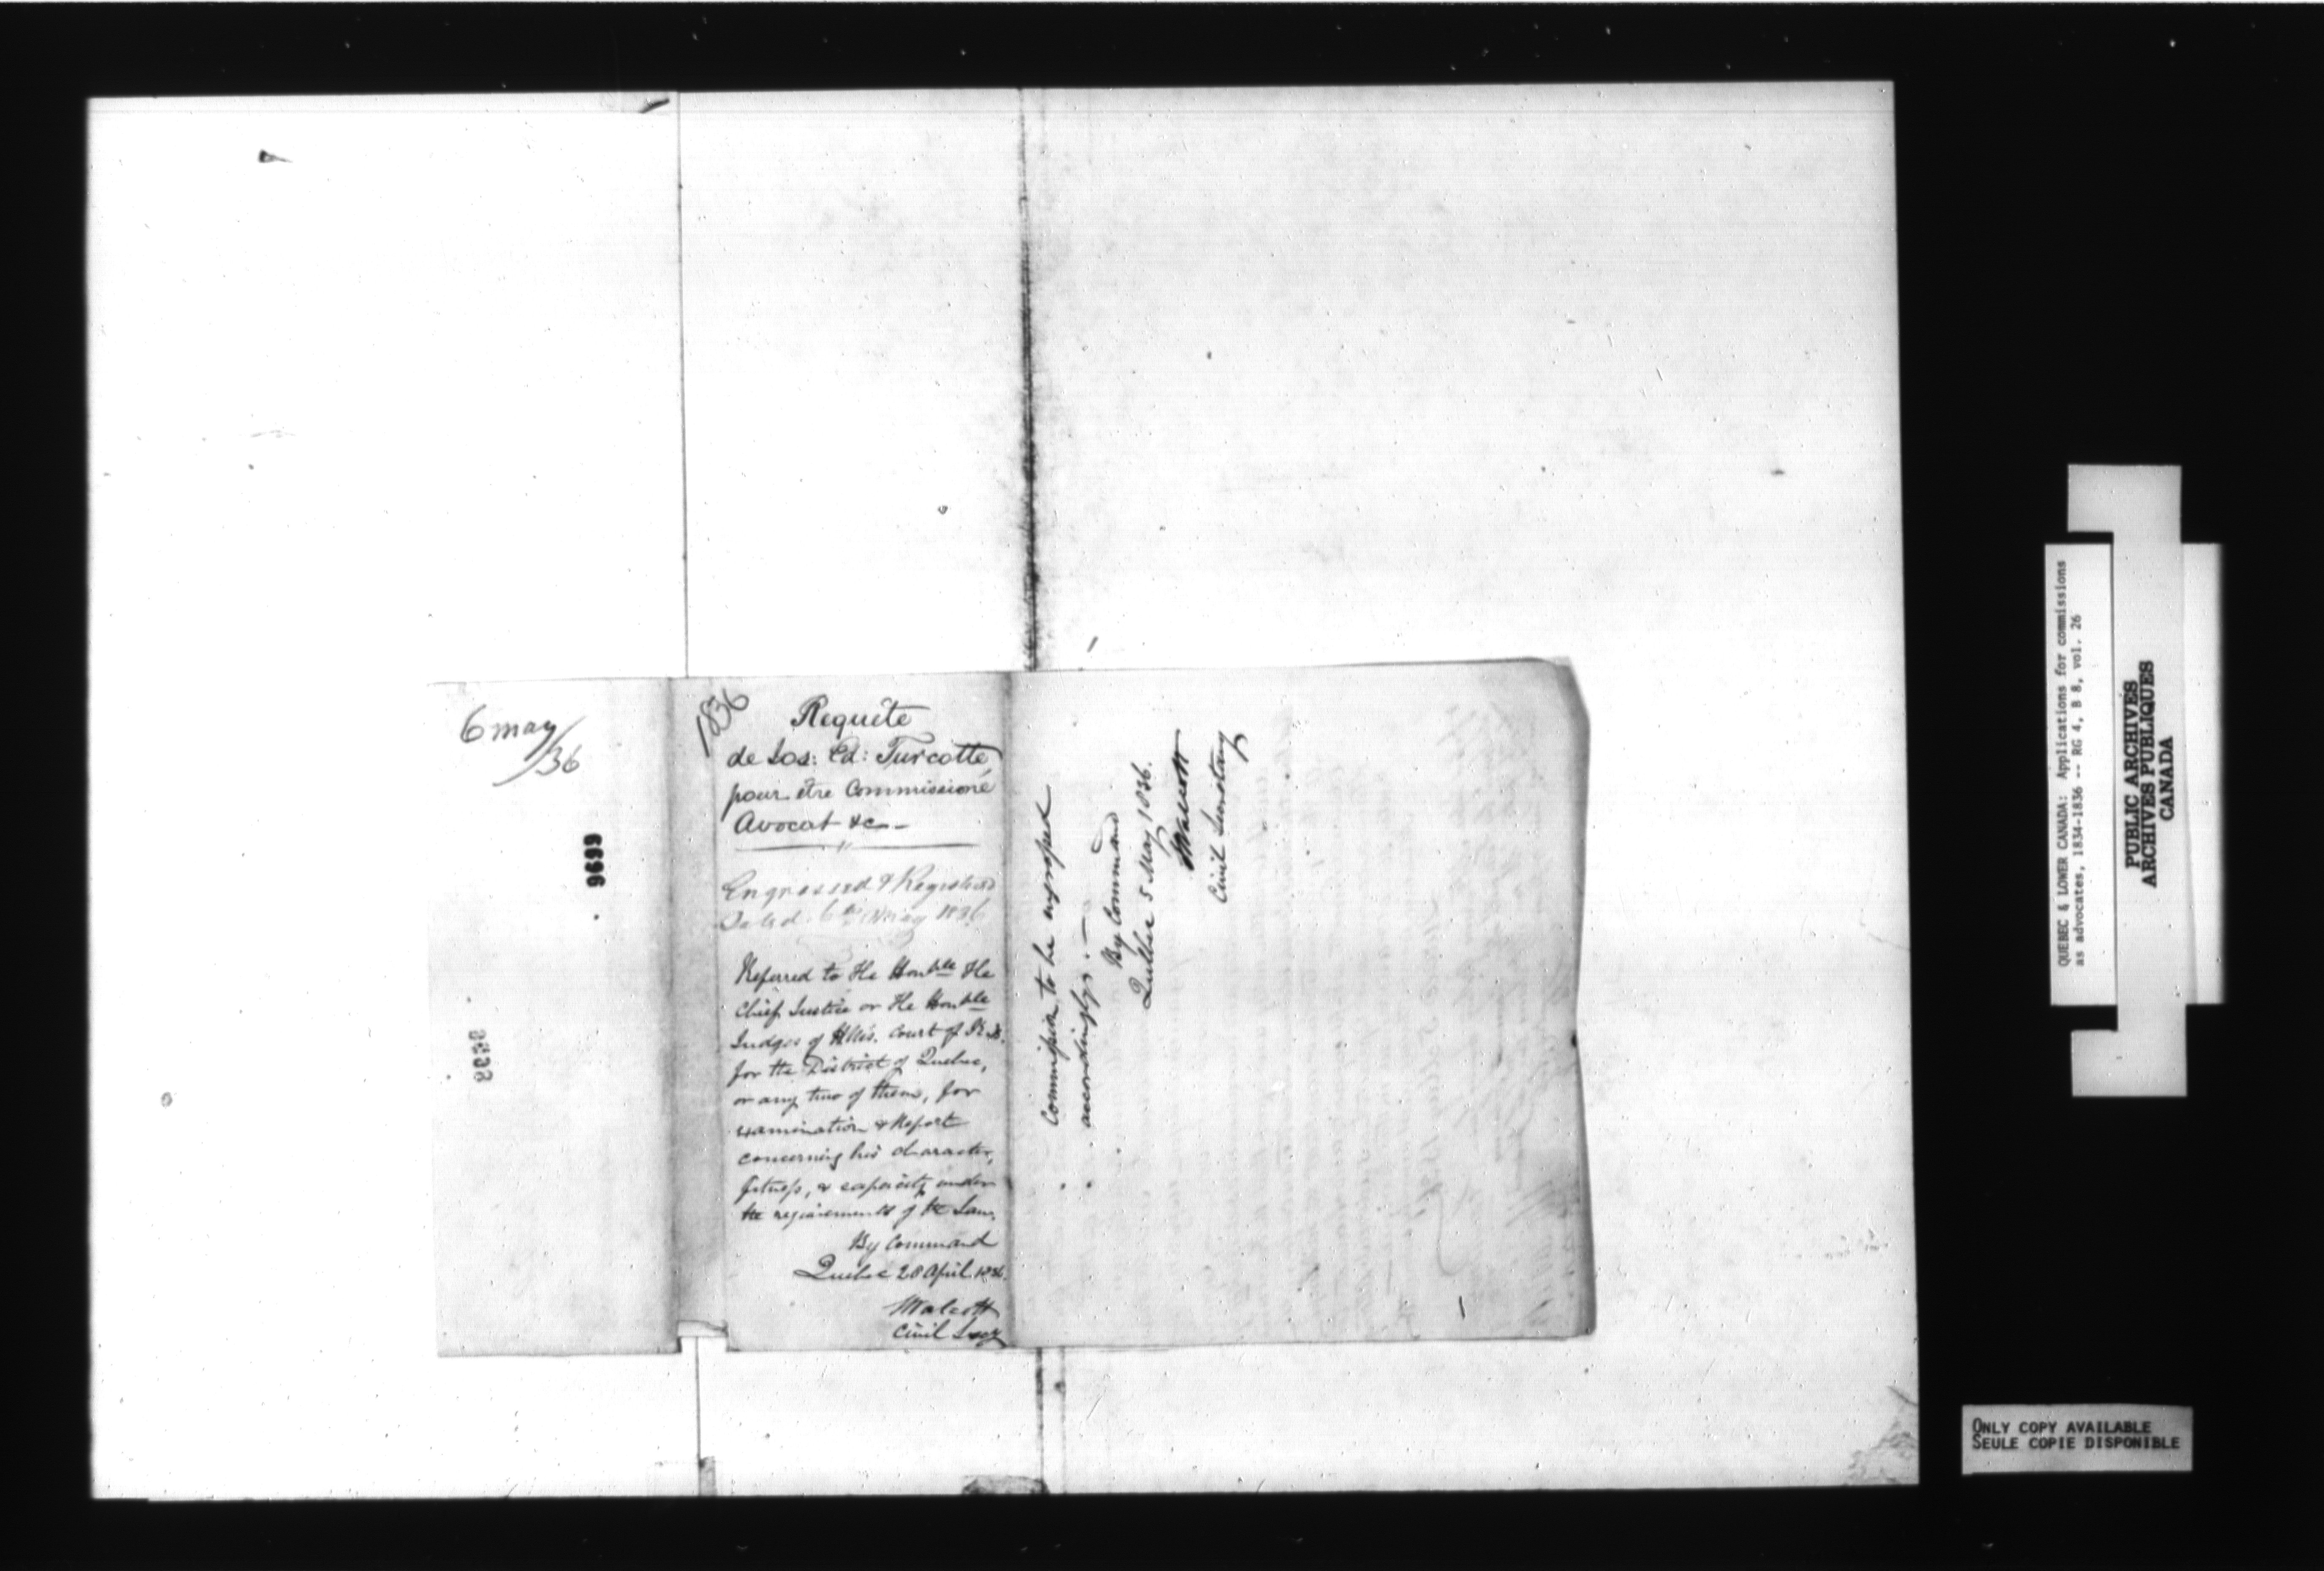 6 may
/36
9699
1836
Requête
de Jos: Ed: Turcotte,
pour être Commissioné
Avocat &c—
Engrossed & Registered
Dated 6th May 1836
Referred to the Honble the
Chief Justice or the Honble
Judges of H.M's. Court of K.B.
for the District of Quebec,
or any two of them, for
examination & Report
concerning his character,
fitness, & capacity under
the requirements of the Law.
By Command
Quebec 28 April 1836.
Walcott
Civil Secy
Commission to be engrossed
accordingly.—
By Command
Quebec 5 May 1836.
Walcott
Civil Secretary
QUEBEC & LOWER CANADA: Applications for commissions
as advocates, 1834-1836 -- RG 4, B 8, vol. 26
PUBLIC ARCHIVES
ARCHIVES PUBLIQUES
CANADA
ONLY COPY AVAILABLE
SEULE COPIE DISPONIBLE